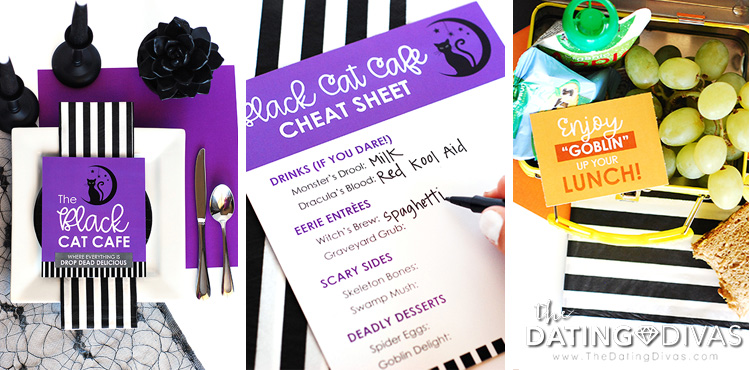 The
Black
CAT CAFE
WHERE EVERYTHING IS
DROP DEAD DELICIOUS
Black Cat Cafe
CHEAT SHEET
DRINKS (IF YOU DARE!)
Monster's Drool: Milk
Dracula's Blood: Red Kool Aid
EERIE ENTRÈES
Witch's Brew: Spaghetti
Graveyard Grub:
SCARY SIDES
Skeleton Bones:
Swamp Mush:
DEADLY DESSERTS
Spider Eggs:
Goblin Delight:
Enjoy
"GOBLIN"
UP YOUR
LUNCH!
the
DATING DIVAS
www.TheDatingDivas.com